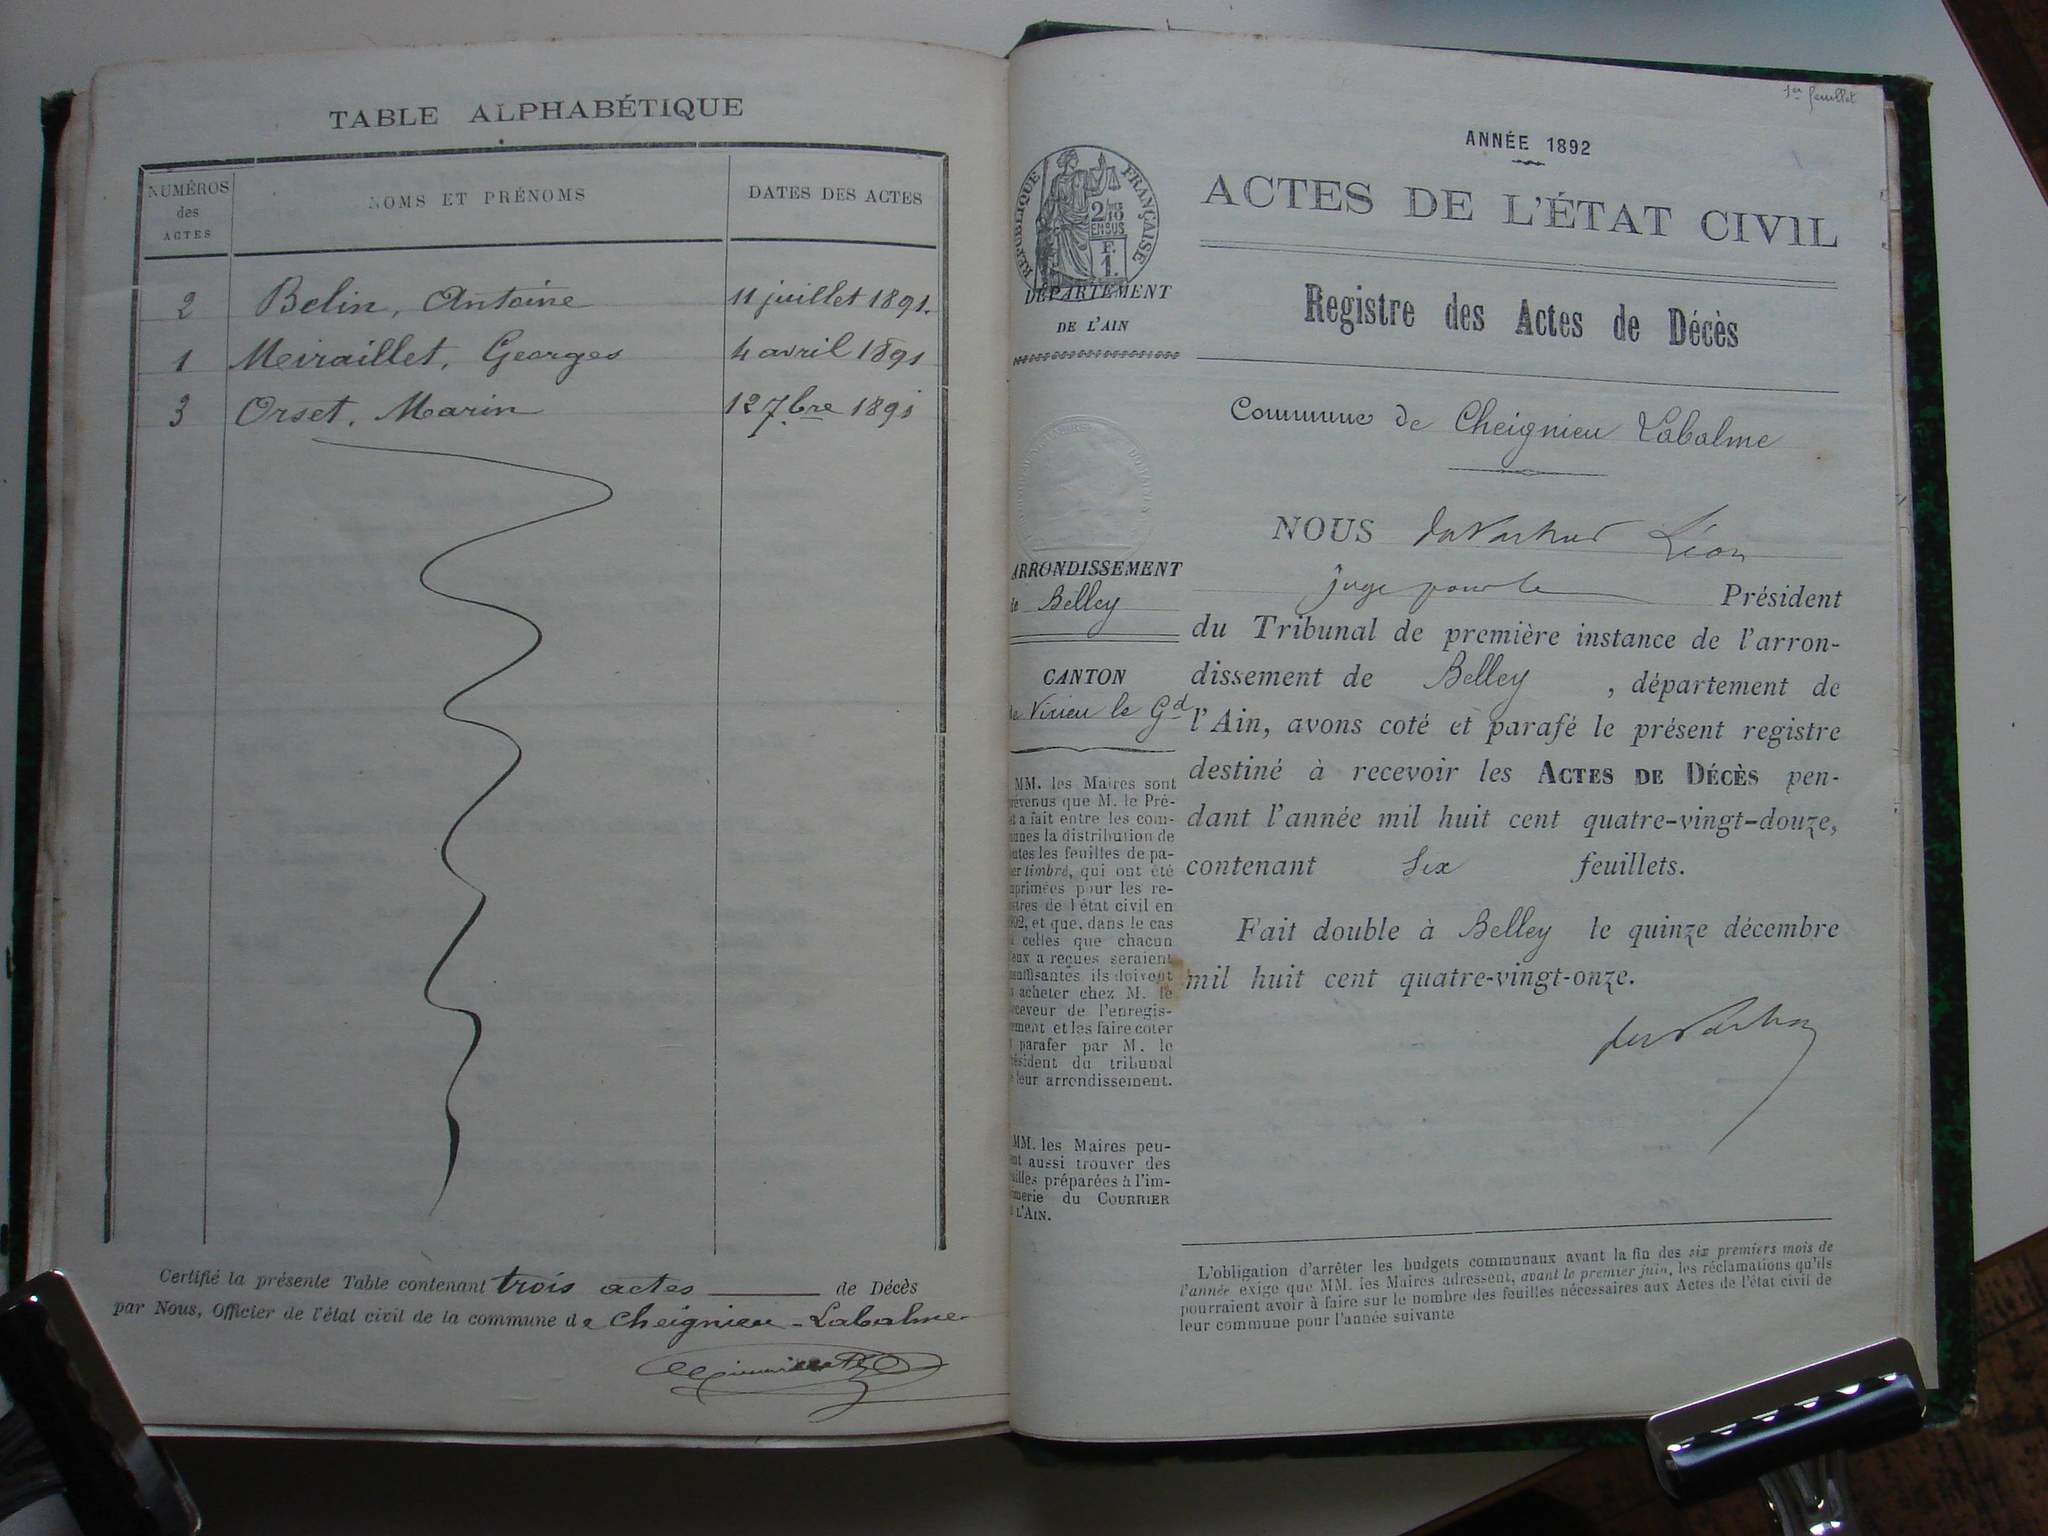 TABLE ALPHABÉTIQUE
NUMÉROS
des
ACTES
NOMS ET PRÉNOMS
DATES DES ACTES
2 Belin, Antoine 11 juillet 1891.
1 Meiraillet, Georges 4 avril 1891
3 Orset, Marin 12 7bre 1891
Certifié la présente Table contenant trois actes de Décès
par Nous, Officier de l'état civil de la commune de Cheignieu-Labalme
1er feuillet
ANNÉE 1892
ACTES DE L'ÉTAT CIVIL
Registre des Actes de Décès
Commune de Cheignieu Labalme
NOUS Léon
juge pour le Président
du Tribunal de première instance de l'arron-
dissement de Belley, département de
l'Ain, avons coté et parafé le présent registre
destiné à recevoir les ACTES DE DÉCÈS pen-
dant l'année mil huit cent quatre-vingt-douze,
contenant Six feuillets.
Fait double à Belley le quinze décembre
mil huit cent quatre-vingt-onze.
L'obligation d'arrêter les budgets communaux avant la fin des six premiers mois de
l'année exige que MM. les Maires adressent, avant le premier juin, les réclamations qu'ils
pourraient avoir à faire sur le nombre des feuilles nécessaires aux Actes de l'état civil de
leur commune pour l'année suivante
RÉPUBLIQUE FRANÇAISE
2/10
EN SUS
F.
1.
DÉPARTEMENT
DE L'AIN
ARRONDISSEMENT
de Belley
CANTON
de Virieu le Gd
MM. les Maires sont
révenus que M. le Pré-
et a fait entre les com-
unes la distribution de
utes les feuilles de pa-
er timbré, qui ont été
mprimées pour les re-
stres de l'état civil en
892, et que, dans le cas
celles que chacun
eux a reçues seraient
nsuffisantes ils doivent
acheter chez M. le
eceveur de l'enregis-
ement et les faire coter
parafer par M. le
résident du tribunal
leur arrondissement.
MM. les Maires peu-
ent aussi trouver des
uilles préparées à l'im-
imerie du COURRIER
L'AIN.